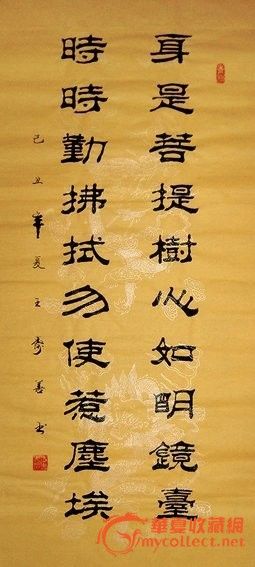 身是菩提樹心如明鏡臺
時時勤拂拭勿使惹塵埃
己丑年夏王善书
華夏收藏網
mycollect.net